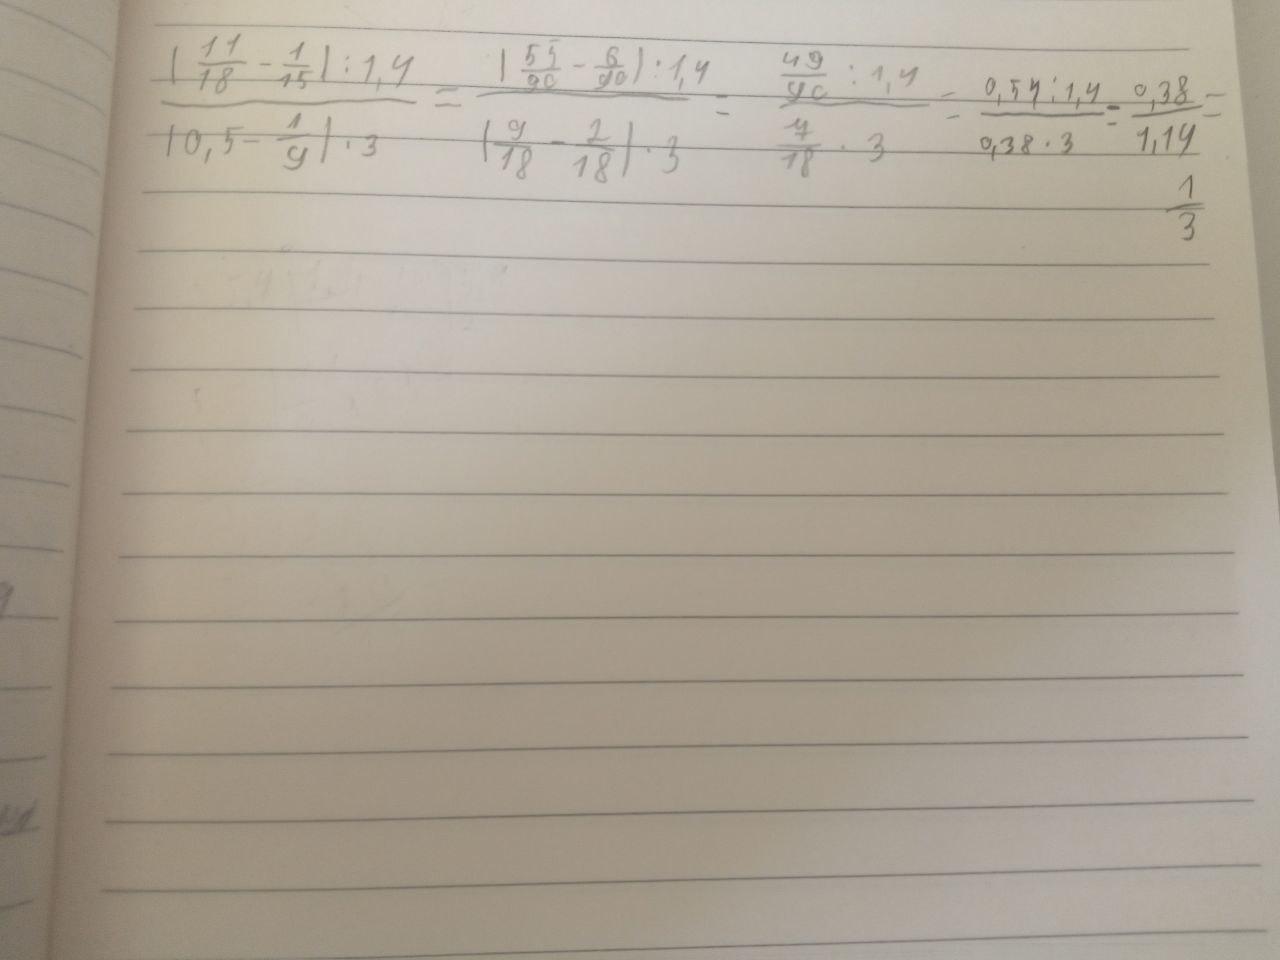 (11/18 - 1/15) : 1,4 / (0,5 - 1/9) · 3 = (55/90 - 6/90) : 1,4 / (9/18 - 2/18) · 3 = 49/90 : 1,4 / 7/18 · 3 = 0,54 : 1,4 / 0,38 · 3 = 0,38 / 1,14 =
1/3